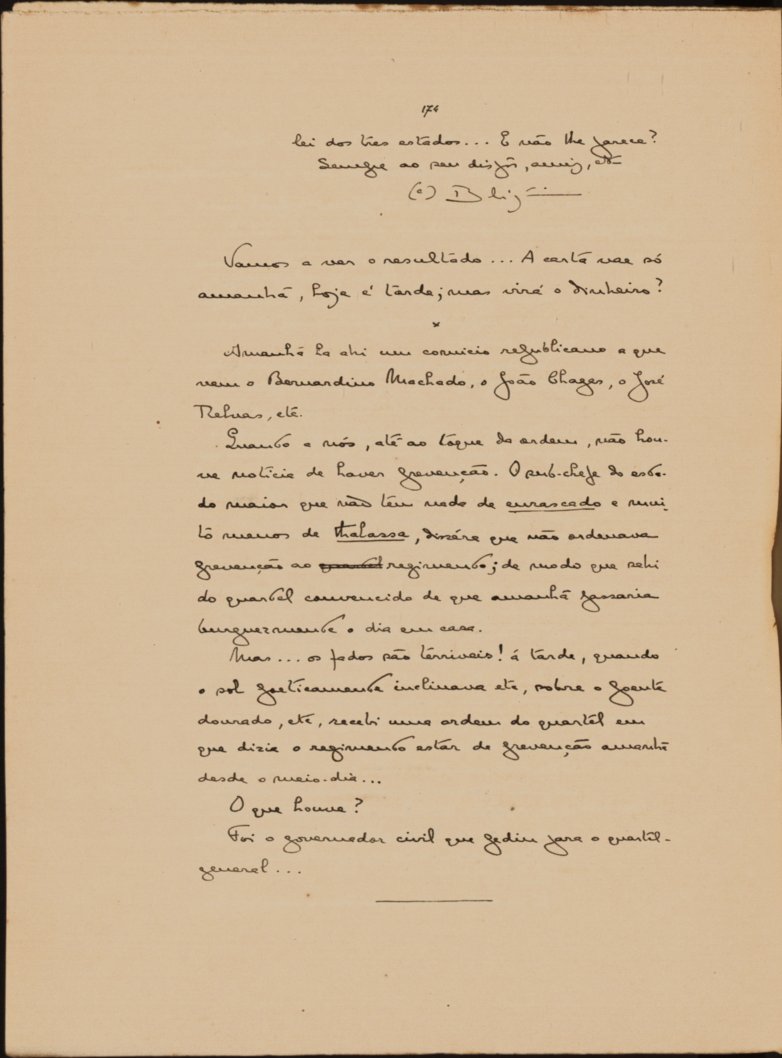 174
lei dos tres estados... E não lhe parece?
Sempre ao seu dispôr, amig, etc
(a)
Vamos a ver o resultado... A carta vae só
amanhã, hoje é tarde; mas virá o dinheiro?
*
Amanhã ha ahi um comicio republicano a que
vem o Bernardino Machado, o João Chagas, o José
Relvas, etc.
Quanto a nós, até ao tóque da ordem, não hou-
ve noticia de haver prevenção. O sub-chefe do esta-
do maior que não tem nada de enrascado e mui-
to menos de thalassa, disséra que não ordenava
prevenção ao quartel regimento; de modo que sahi
do quartel convencido de que amanhã passaria
burguezmente o dia em casa.
Mas... os fados são terriveis! á tarde, quando
o sol poeticamente inclinava etc, sobre o poente
dourado, etc, recebi uma ordem do quartel em
que dizia o regimento estar de prevenção amanhã
desde o meio-dia...
O que houve?
Foi o governador civil que pediu para o quartel-
general...